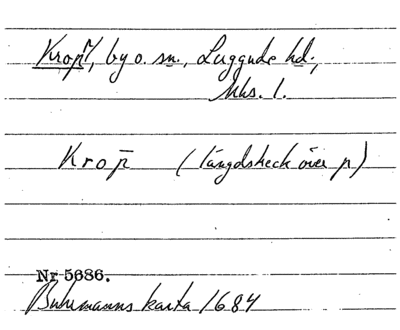 Kropp, by o. sn., Luggude hd.,
Mhs. l.
Krop̄ (längdstreck över p)
Nr 5686.
Buhrmanns karta 1684